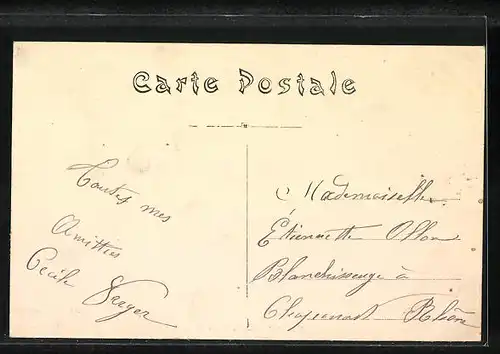 Carte Postale
Toutes mes
Amitiés
Cécile Verger
Mademoiselle
Étiennette Ollon
Blanchisseuse à
Rhône